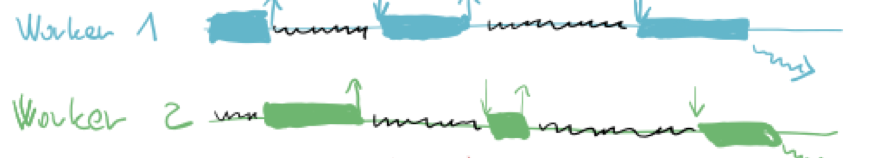 Worker 1
Worker 2